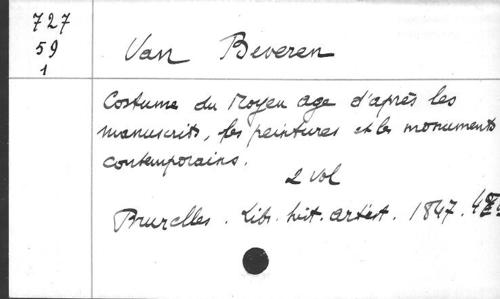 727
59
1
Van Beveren
Costume du Moyen age d'après les
manuscrits, les peintures et les monuments
contemporains.
2 vol
Bruxelles. Lib. hist. artist. 1847.